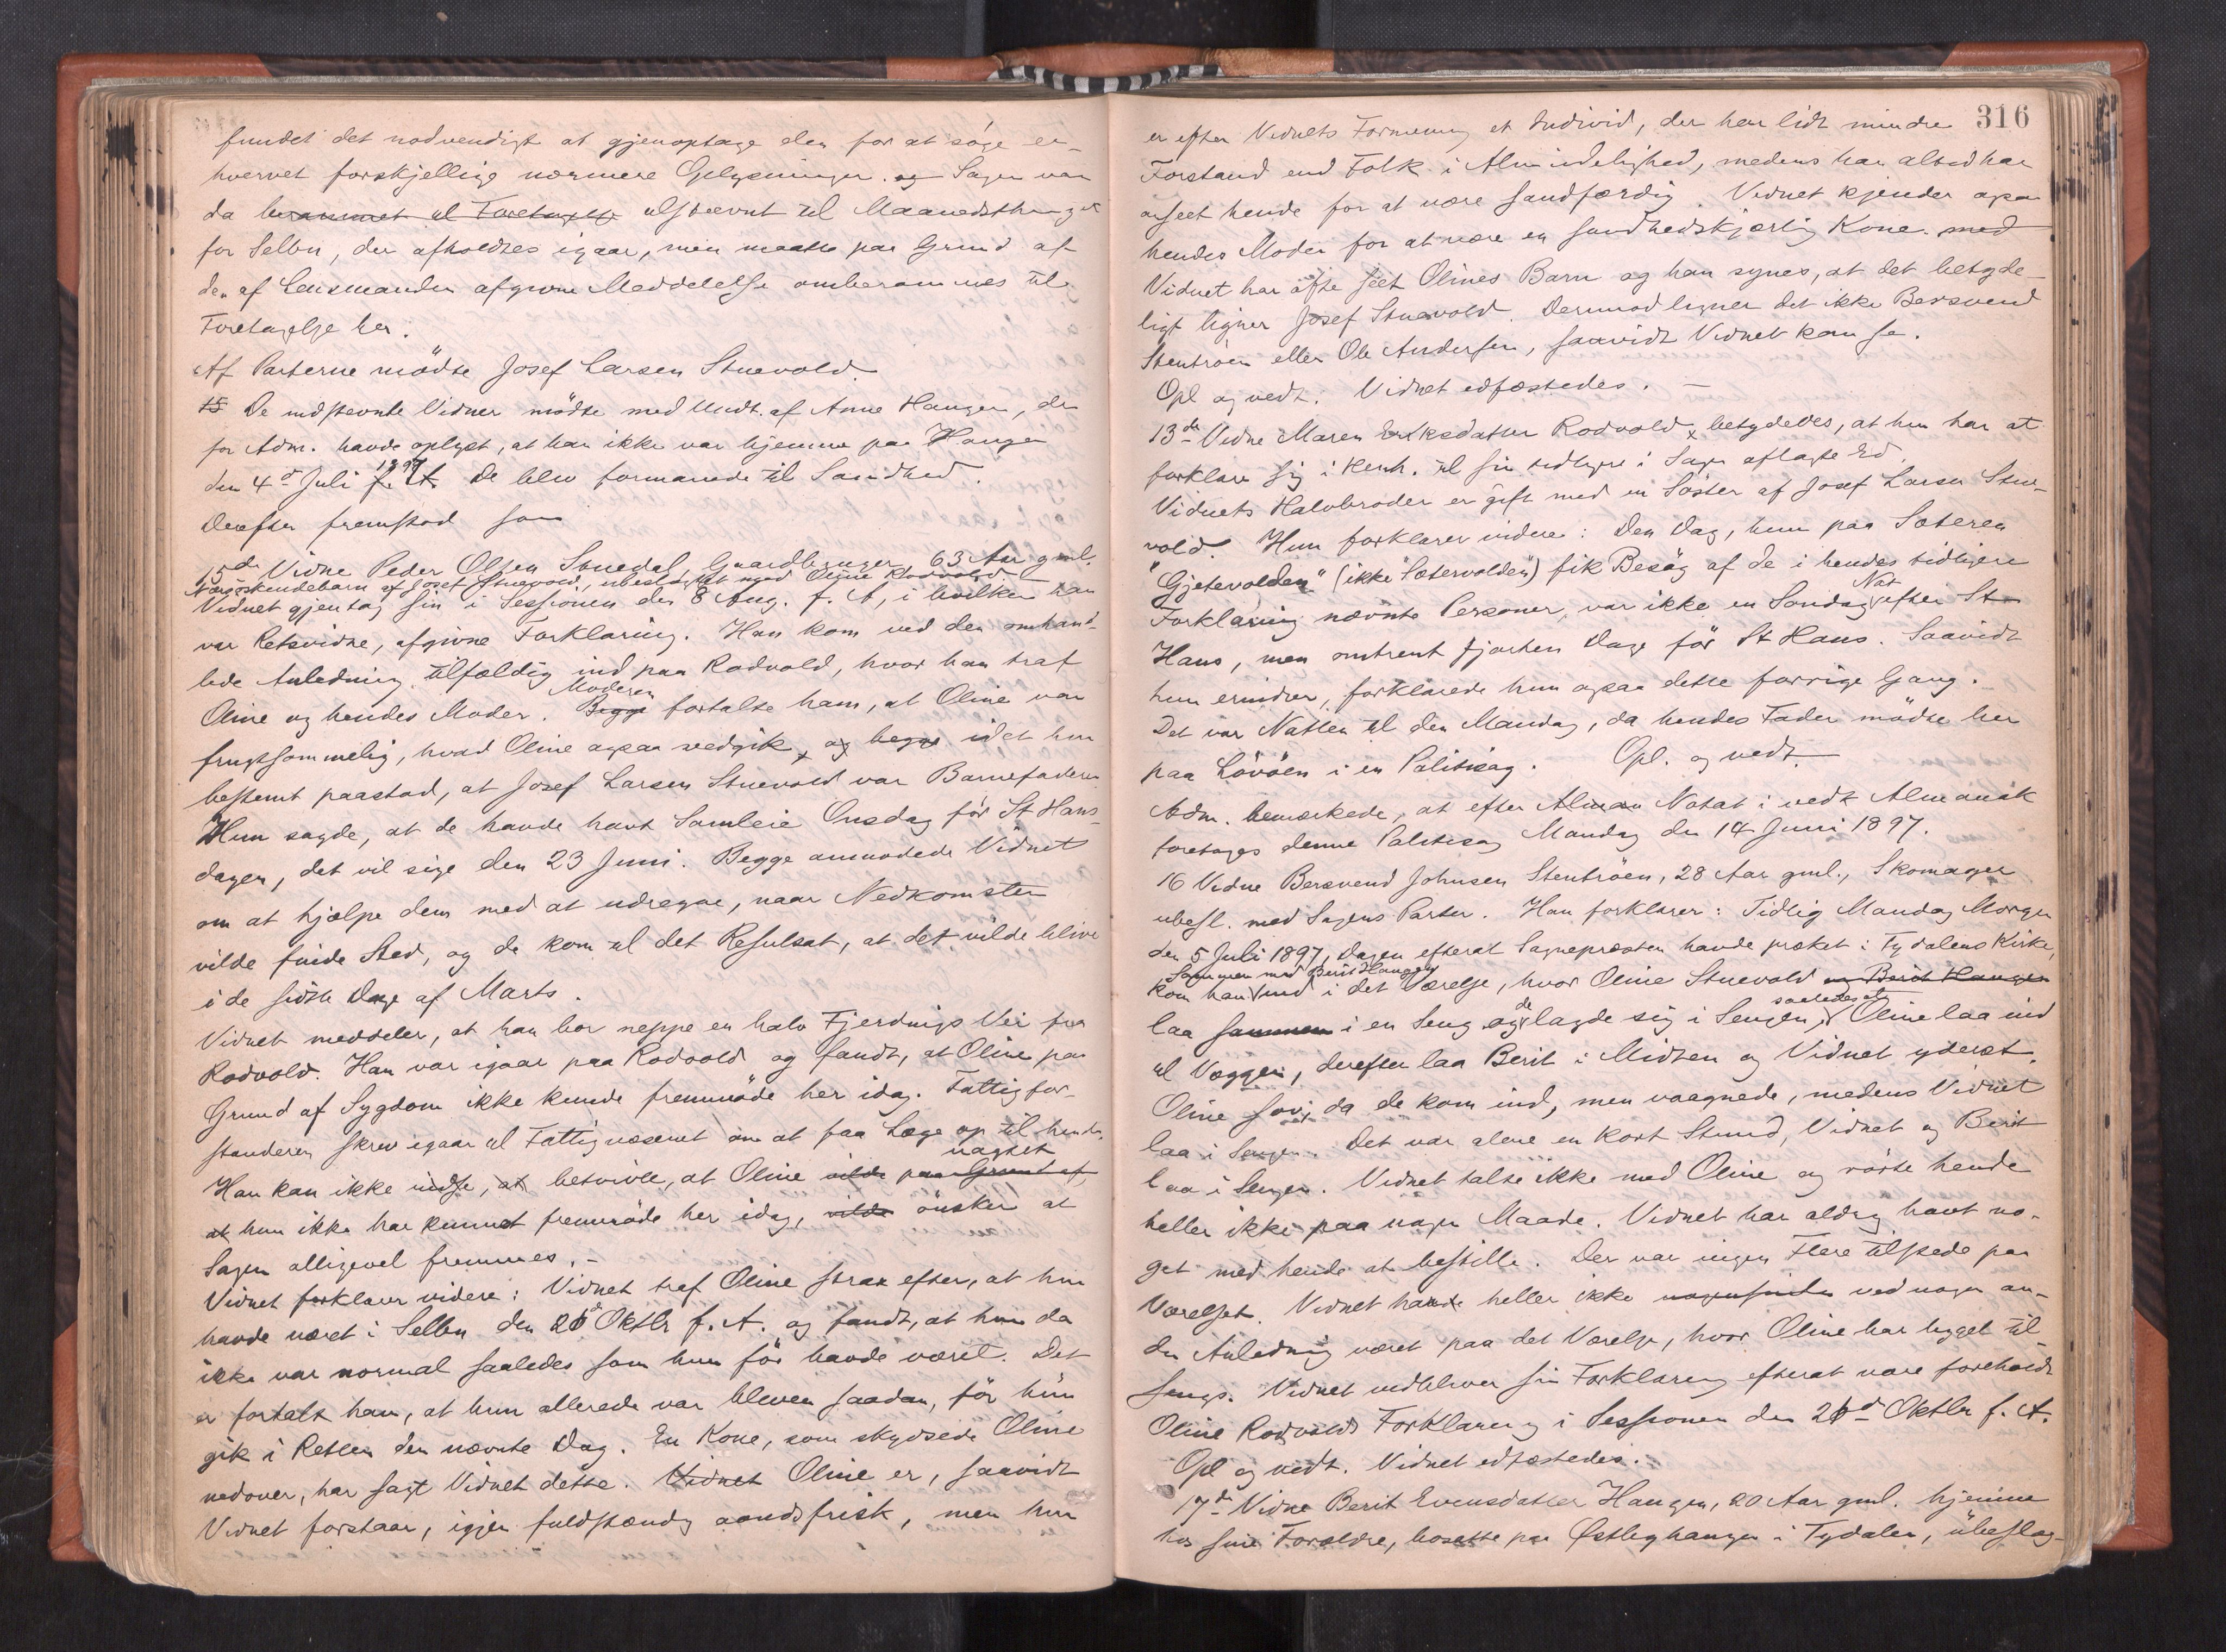 fundet det nødvendigt at gjenoptage den for at søge er-
hvervet forskjellige nærmere Oplysninger. og Sagen var
da beraammet til Foretagelse udstævnt til Maanedsthinget
for Selbu, der afholdtes igaar, men maatte paa Grund af
den af Lensmanden afgivne Meddelelse omberammes til
Foretagelse her.
Af Parterne mødte Josef Larsen Stuevold.
15 De indstevnte Vidner mødte med Undt. af Anne Haugen, der
for Adm. havde oplyst, at han ikke var hjemme paa Haugen
den 4de Juli f. A. 1897 De blev formanede til Sandhed.
Derefter fremstod som
15de Vidne Peder Olsen Svuedal, Gaardbruger 63 Aar gml.
Næstskendebarn af Josef Stuevold, ubeslægtet med Oline Rodvold
Vidnet gjentog sin i Sessionen den 8 Aug. f. A, i hvilken han
var Retsvidne, afgivne Forklaring. Han kom ved den omhand-
lede Anledning tilfældig ind paa Rodvold, hvor han traf
Oline og hendes Moder. Begge Moderen fortalte ham, at Oline var
frugtsommelig, hvad Oline ogsaa vedgik, og begge idet hun
bestemt paastod, at Josef Larsen Stuevold var Barnefaderen
Hun sagde, at de havde havt Samleie Onsdag før St Hans-
dagen, det vil sige den 23 Juni. Begge anmodede Vidnet
om at hjælpe dem med at udregne, naar Nedkomsten
vilde finde Sted, og de kom til det Resultat, at det vilde blive
i de sidste Dage af Marts.
Vidnet meddeler, at han bor neppe en halv Fjerdings Vei fra
Rodvold. Han var igaar paa Rodvold og fandt, at Oline paa
Grund af Sygdom ikke kunde fremmøde her idag. Fattigfor-
standeren skrev igaar til Fattigvæsenet om at faa Læge op til hende.
Han kan ikke indse, at betvivle, at Oline vilde paa Grund af uagtet
at hun ikke har kunnet fremmøde her idag, vilde ønsker at
Sagen alligevel fremmes. -
Vidnet forklarer videre: Vidnet traf Oline strax efter, at hun
havde været i Selbu den 26de Oktbr f. A. og fandt, at hun da
ikke var normal saaledes som hun før havde været. Det
er fortalt ham, at hun allerede var bleven saadan, før hun
gik i Retten den nævnte Dag. En Kone, som skydsede Oline
nedover, har sagt Vidnet dette. Vidnet Oline er, saavidt
Vidnet forstaar, igjen fuldstændig aandsfrisk, men hun
316
er efter Vidnets Formening et Individ, der har lidt mindre
Forstand end Folk i Almindelighed, medens han altid har
anseet hende for at være sandfærdig. Vidnet kjender ogsaa
hendes Moder for at være en sandhedskjærlig Kone. med
Vidnet har ofte seet Olines Barn og han synes, at det betyde-
ligt ligner Josef Stuevold. Derimod ligner det ikke Bersvend
Stentrøen eller Ole Andersen, saavidt Vidnet kan se.
Opl og vedt. Vidnet edfæstedes. -
13de Vidne Maren Eriksdatter Rodvold, betydedes, at hun har at
forklare sig i Kenh. til sin tidligere i Sagen aflagte Ed.
Vidnets Halvbroder er gift med en Søster af Josef Larsen Stue-
vold. Hun forklarer videre: Den Dag, hun paa Sæteren
"Gjetevolden" (ikke "Sætervolden") fik Besøg af de i hendes tidligere
Forklaring nævnte Personer, var ikke en Søndag Nat efter St
Hans, men omtrent fjorten Dage før St Hans. Saavidt
hun erindrer, forklarede hun ogsaa dette forrige Gang.
Det var Natten til den Mandag, da hendes Fader mødte her
paa Løvøen i en Politisag. Opl. og vedt.
Adm. bemærkede, at efter Alman Notat i vedk Almanak
foretoges denne Politisag Mandag den 14 Juni 1897.
16 Vidne Bersvend Johnsen Stentrøen, 28 Aar gml., Skomager
ubesl. med Sagens Parter. Han forklarer: Tidlig Mandag Morgen
den 5 Juli 1897, Dagen efterat Sognepræsten havde præket i Tydalens Kirke,
kom han sammen med Berit Haugen ind i det Værelse, hvor Oline Stuevold og Berit Haugen
laa sammen i en Seng og de lagde sig i Sengen, saaledes at Oline laa ind
til Væggen, derefter laa Berit i Midten og Vidnet yderst.
Oline sov, da de kom ind, men vaagnede, medens Vidnet
laa i Sengen. Det var alene en kort Stund, Vidnet og Berit
laa i Sengen. Vidnet talte ikke med Oline og rørte hende
heller ikke paa nogen Maade. Vidnet har aldrig havt no-
get med hende at bestille. Der var ingen Flere tilstede paa
Værelset. Vidnet havde heller ikke nogensinde ved nogen an-
den Anledning været paa det Værelse, hvor Oline har ligget til
sengs. Vidnet vedbliver sin Forklaring efterat være foreholdt
Oline Rodvolds Forklaring i Sessionen den 26de Oktbr f. A.
Opl og vedt. Vidnet edfæstedes.
17de Vidne Berit Evensdatter Haugen, 20 Aar gml. hjemme
hos sine Forældre, bosatte paa Østbyhaugen i Tydalen, ubeslæg-